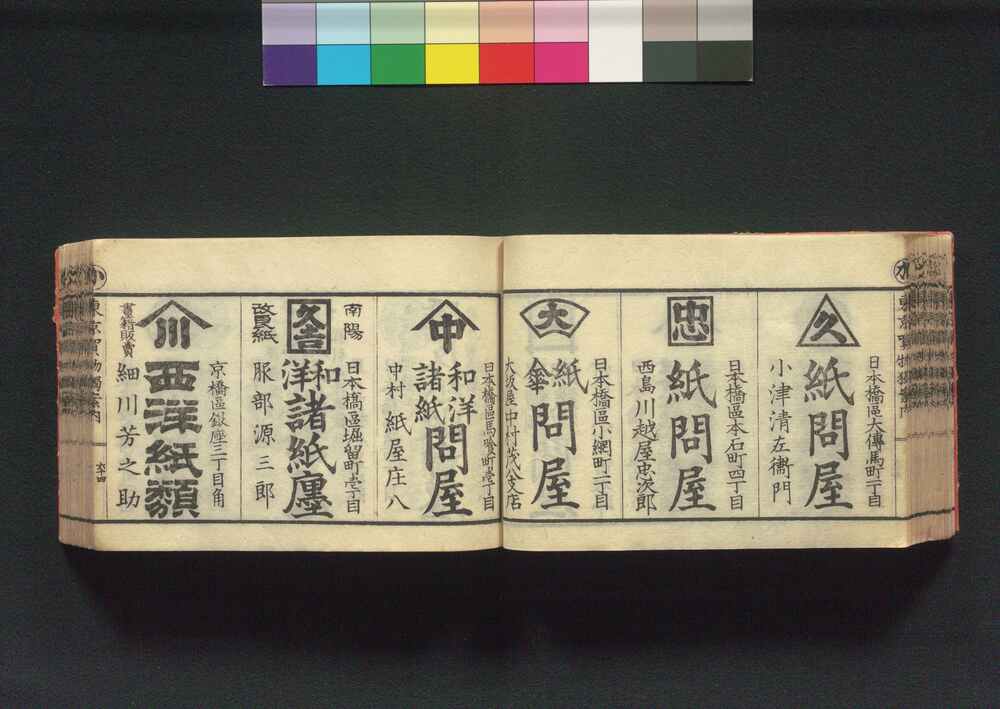 日本橋區大傳馬町一丁目
久
紙問屋
小津清左衞門
日本橋區本石町四丁目
忠
紙問屋
西島川越屋忠次郎
日本橋區小網町二丁目
大
紙
傘
問屋
大坂屋中村茂八支店
日本橋區馬喰町壱丁目
中
和洋
諸紙
問屋
中村紙屋庄八
南陽
日本橋區堀留町壱丁目
久吉
和洋諸紙廛
改良紙
服部源三郎
京橋區銀座三丁目角
川
西洋紙類
書籍販賣
細川芳之助
東京買物獨案内
六十四